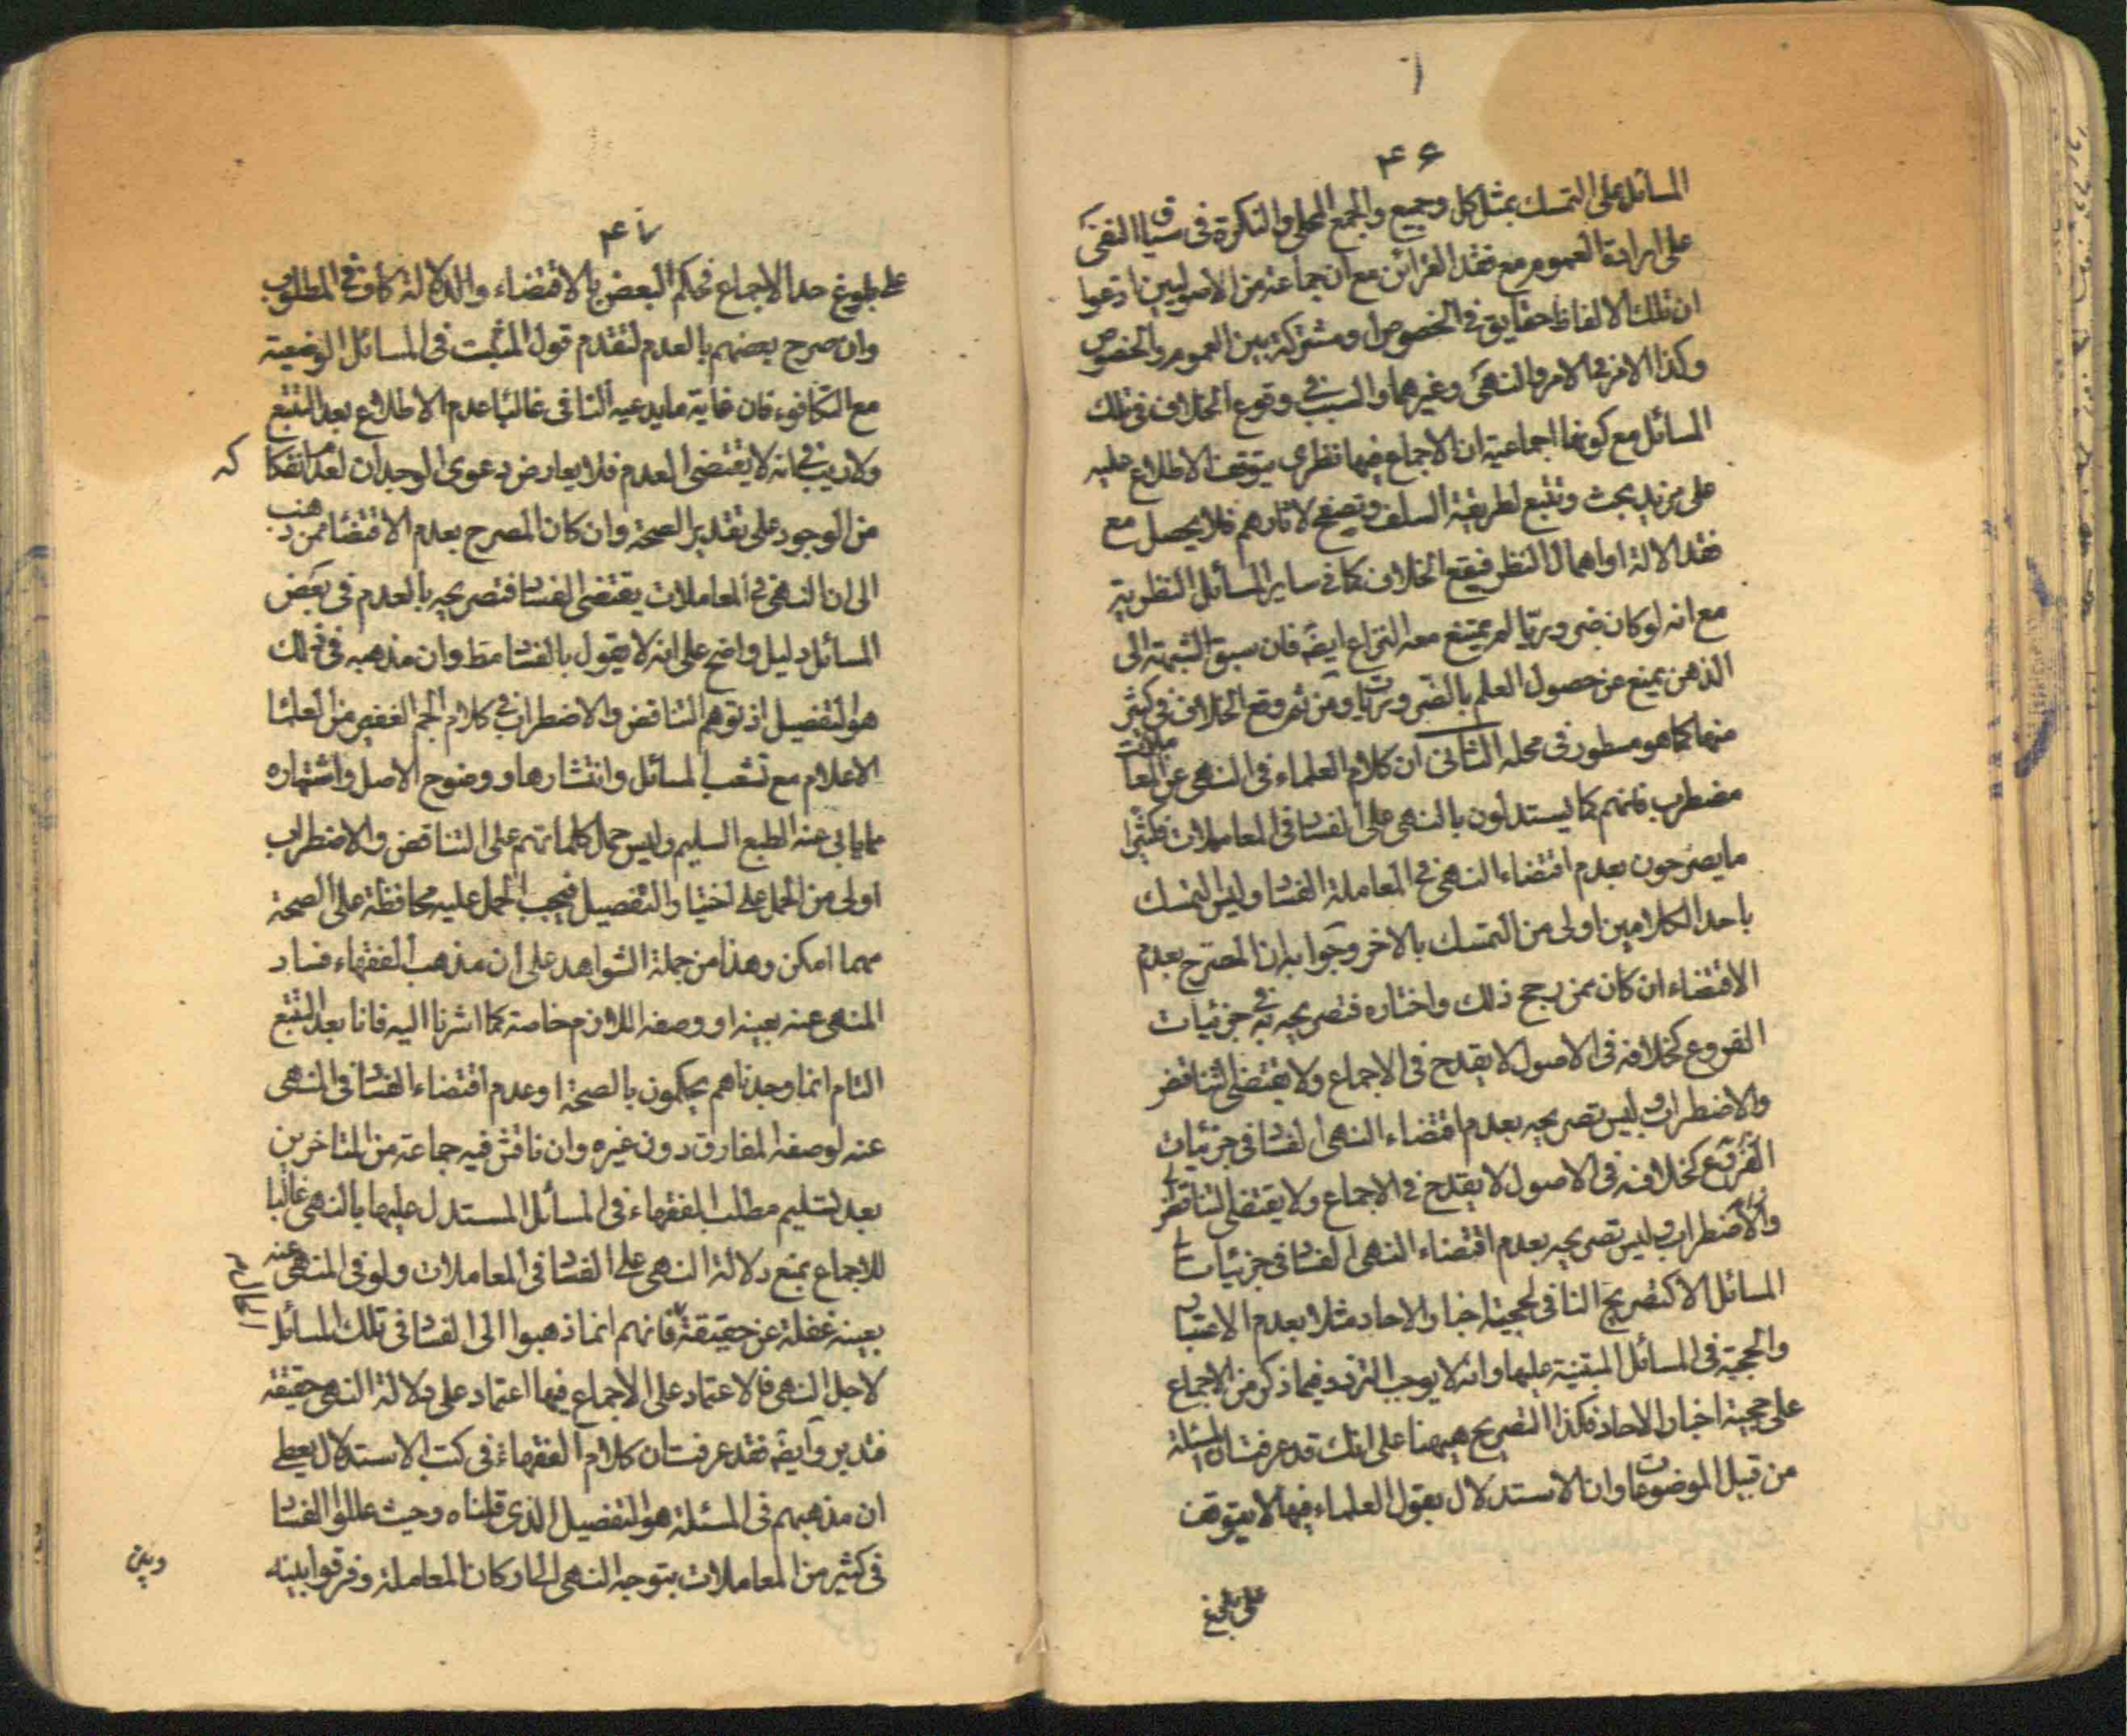 ۴۶
المسائل على التمسك بمثل كل وجميع والجمع المحلى والنكرة فى سياق النفى
على ارادة العموم مع فقد القرائن مع ان جماعة من الاصوليين ادعوا
ان تلك الالفاظ حقايق فى الخصوص او مشتركة بين العموم والخصوص
وكذا الامر فى الامر والنهى وغيرهما والسبب فى وقوع الخلاف فى تلك
المسائل مع كونها اجماعية ان الاجماع فيها نظرى يتوقف الاطلاع عليه
على مزيد بحث وتتبع لطريقة السلف وتصفح لاثارهم فلا يحصل مع
فقد الالة او اهمال النظر فيقع الخلاف كما فى ساير المسائل النظرية
مع انه لو كان ضروريّا لم يمتنع معه النزاع ايضَه فان سبق الشبهة الى
الذهن يمنع عن حصول العلم بالضّروريّات ومن ثم وقع الخلاف فى كثير
منها كما هو مسطور فى محله الثانى ان كلام العلماء فى النهى عن المعاملات
مضطرب فانهم كما يستدلون بالنهى على الفسٰا فى المعاملات فكثيرا
ما يصرحون بعدم اقتضاء النهى فى المعاملة الفسٰا وليس التمسك
باحد الكلامين اولى من التمسك بالاخر وجوابه ان المصرح بعدم
الاقتضاء ان كان ممن رجح ذلك واختاره فتصريحه به فى جزئيات
الفروع كخلافه فى الاصول لا يقدح فى الاجماع ولا يقتضى التناقض
والاضطراب وليس تصريحه بعدم اقتضاء النهى الفسٰا فى جزئيات
الفروع كخلافه فى الاصول لا يقدح فى الاجماع ولا يقتضى التناقض
والاضطراب وليس تصريحه بعدم اقتضاء النهى الفسٰا فى جزئيات
المسائل الا كتصريح النافى لحجية اخبار الاحاد مثلا بعدم الاعتبار
والحجية فى المسائل المبتنية عليها وانه لا يوجب التردد فيما ذكر من الاجماع
على حجية اخبار الاحاد فكذا التصريح هيهنا على انك قد عرفت ان المسئلة
من قبيل الموضوعات وان الاستدلال بقول العلماء فيها لا يتوقف
على بلوغ
۴۷
على بلوغ حد الاجماع فحكم البعض بالاقتضاء والدلالة كاف فى المطلوب
وان صرح بعضهم بالعدم لتقدم قول المثبت فى المسائل الوضعية
مع التكافوء فان غاية ما يدعيه النافى غالبا عدم الاطلاع بعد التتبع
ولا ريب فى انه لا يقتضى العدم فلا يعارض دعوى الوجدان لعدم انفكاكه
من الوجود على تقدير الصحة وان كان المصرح بعدم الاقتضٰا ممن ذهب
الى ان النهى فى المعاملات يقتضى الفسٰا فتصريحه بالعدم فى بعض
المسائل دليل واضح على انه لا يقول بالفسٰا مط وان مذهبه فى ذلك
هو التفصيل اذ توهم التناقض والاضطراب فى كلام الجم الغفير من العلمٰا
الاعلام مع تشعب المسائل وانتشارها ووضوح الاصل واشتهاره
مما يابى عنه الطبع السليم وليس حمل كلماتهم على التناقض والاضطراب
اولى من الحمل على اختيار التفصيل فيجب الحمل عليه محافظة على الصحة
مهما امكن وهذا من جملة الشواهد على ان مذهب الفقهاء فساد
المنهى عنه بعينه او وصفه اللازم خاصة كما اشرنا اليه فانا بعد التتبع
التام انما وجدناهم يحكمون بالصحة او عدم اقتضاء الفسٰا فى المنهى
عنه لوصفه المفارق دون غيره وان ناقش فيه جماعة من المتاخرين
بعد تسليم مطلب الفقهاء فى المسائل المستدل عليها بالنهى غالبا
للاجماع بمنع دلالة النهى على الفسٰا فى المعاملات ولو فى المنهى عنه
بعينه غفلة عن حقيقة فانهم انما ذهبوا الى الفسٰا فى تلك المسائل
لاجل النهى فالاعتماد على الاجماع فيها اعتماد على دلالة النهى حقيقة
فتدبر وايضَه فقد عرفت ان كلام الفقهاء فى كتب الاستدلال يعطى
ان مذهبهم فى المسئلة هو التفصيل الذى قلناه وحيث عللوا الفسٰا
فى كثير من المعاملات بتوجه النهى الى اركان المعاملة وفرقوا بينه
وبين